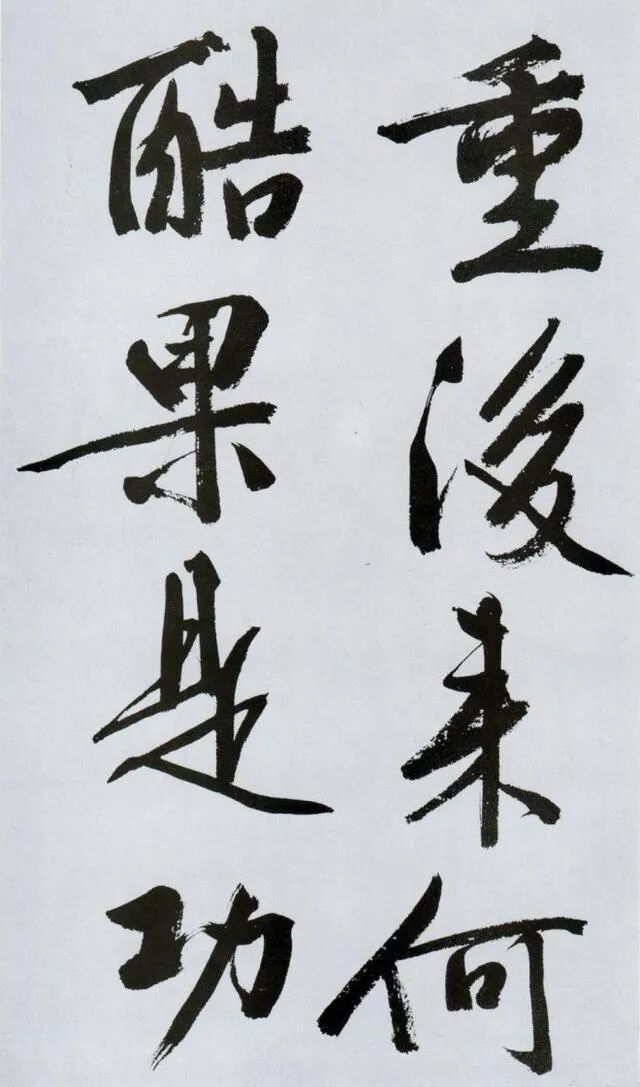 重後来何
酷果是功